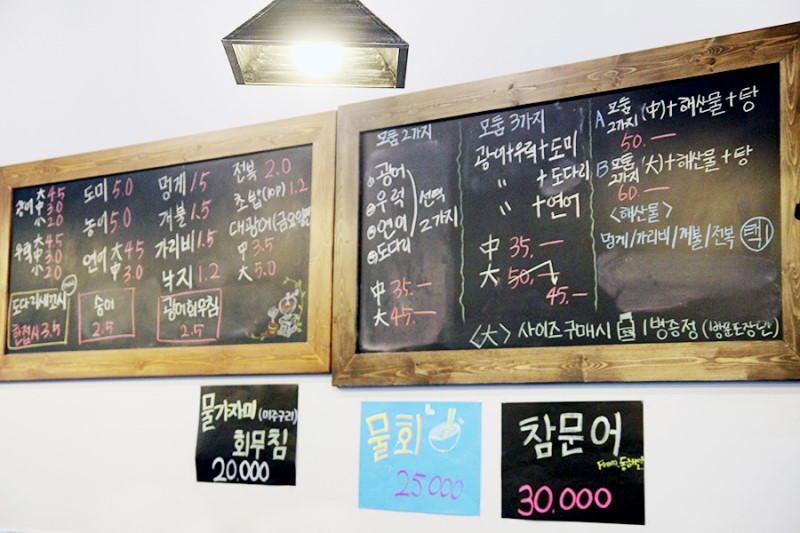 광어 大 4.5
中 3.0
小 2.0
우럭 大 4.5
中 3.0
小 2.0
도다리세꼬시
한접시 3.5
도미 5.0
농어 5.0
연어 大 4.5
中 3.0
송이
2.5
멍게 1.5
개불 1.5
가리비 1.5
낙지 1.2
광어회무침
2.5
전복 2.0
초밥(10P) 1.2
대광어(금요일만)
中 3.5
大 5.0
모둠 2가지
광어
우럭
연어
도다리
선택
2가지
中 35.—
大 45.—
모둠 3가지
광어+우럭+도미
〃 +도다리
〃 +연어
中 35.—
大 50.—
45.—
A 모둠 2가지 (中)+해산물+탕
50.—
B 모둠 2가지 (大)+해산물+탕
60.—
<해산물>
멍게/가리비/개불/전복 택1
<大> 사이즈 구매시 1병증정
물가자미 (미주구리)
회무침
20,000
물회
25,000
참문어
30,000